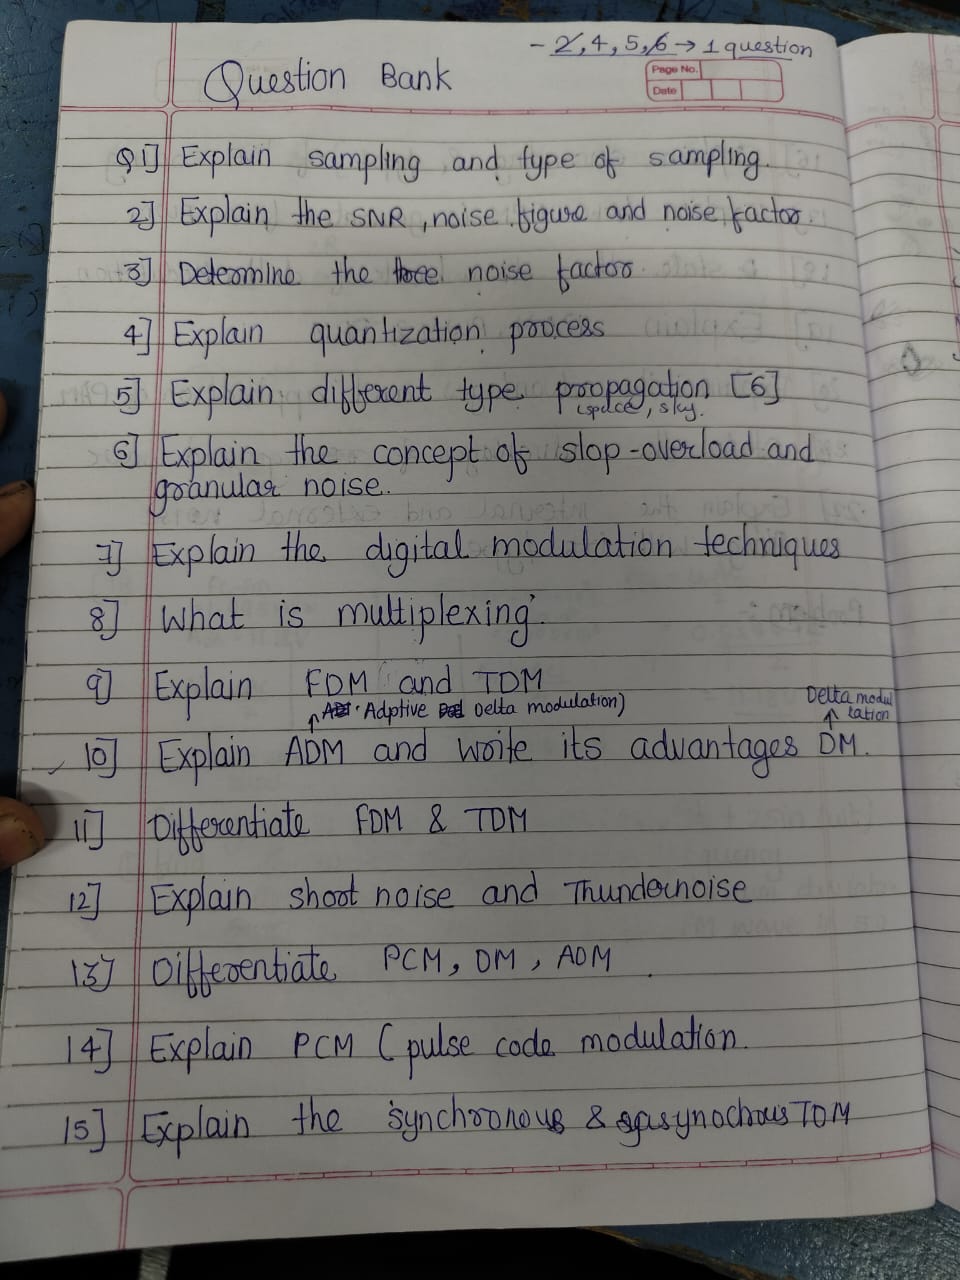 - 2,4,5,6 → 1 question
Question Bank
Page No.
Date
Q1] Explain sampling and type of sampling.
2] Explain the SNR, noise figure and noise factor.
3] Determine the noise factor.
4] Explain quantization process
5] Explain different type propagation [6]
space, sky.
6] Explain the concept of slop-overload and
granular noise.
7] Explain the digital modulation techniques
8] What is multiplexing.
9] Explain FDM and TDM
↑ Adptive Delta modulation)
Delta modu
↑ lation
10] Explain ADM and write its advantages DM.
11] Differentiate FDM & TDM
12] Explain shoot noise and Thundernoise
13] Differentiate PCM, DM, ADM
14] Explain PCM (pulse code modulation.
15] Explain the synchronous & TDM